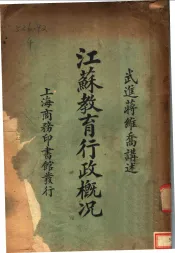 武進蔣維喬講述
江蘇教育行政概况
上海商務印書館發行